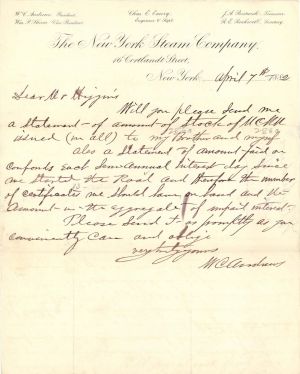 W. C. Andrews, President. Chas. E. Emery, J. A. Bostwick, Treasurer.
Wm. P. Shinn, Vice President. Engineer & Supt. Secretary.
The New York Steam Company,
16 Cortlandt Street,
New York, April 7th 1882
Dear Mr Higgins
Will you please send me
a statement of amount of Stock of
issued (in all) to my brother and myself
also a statement of amount paid on
Coupons each Semi-Annual interest day since
we started the Road and the number
of certificates we should have on hand and the
Amount in the aggregate of unpaid interest.
Please send it as promptly as you
conveniently can and oblige
very truly yours
W C Andrews